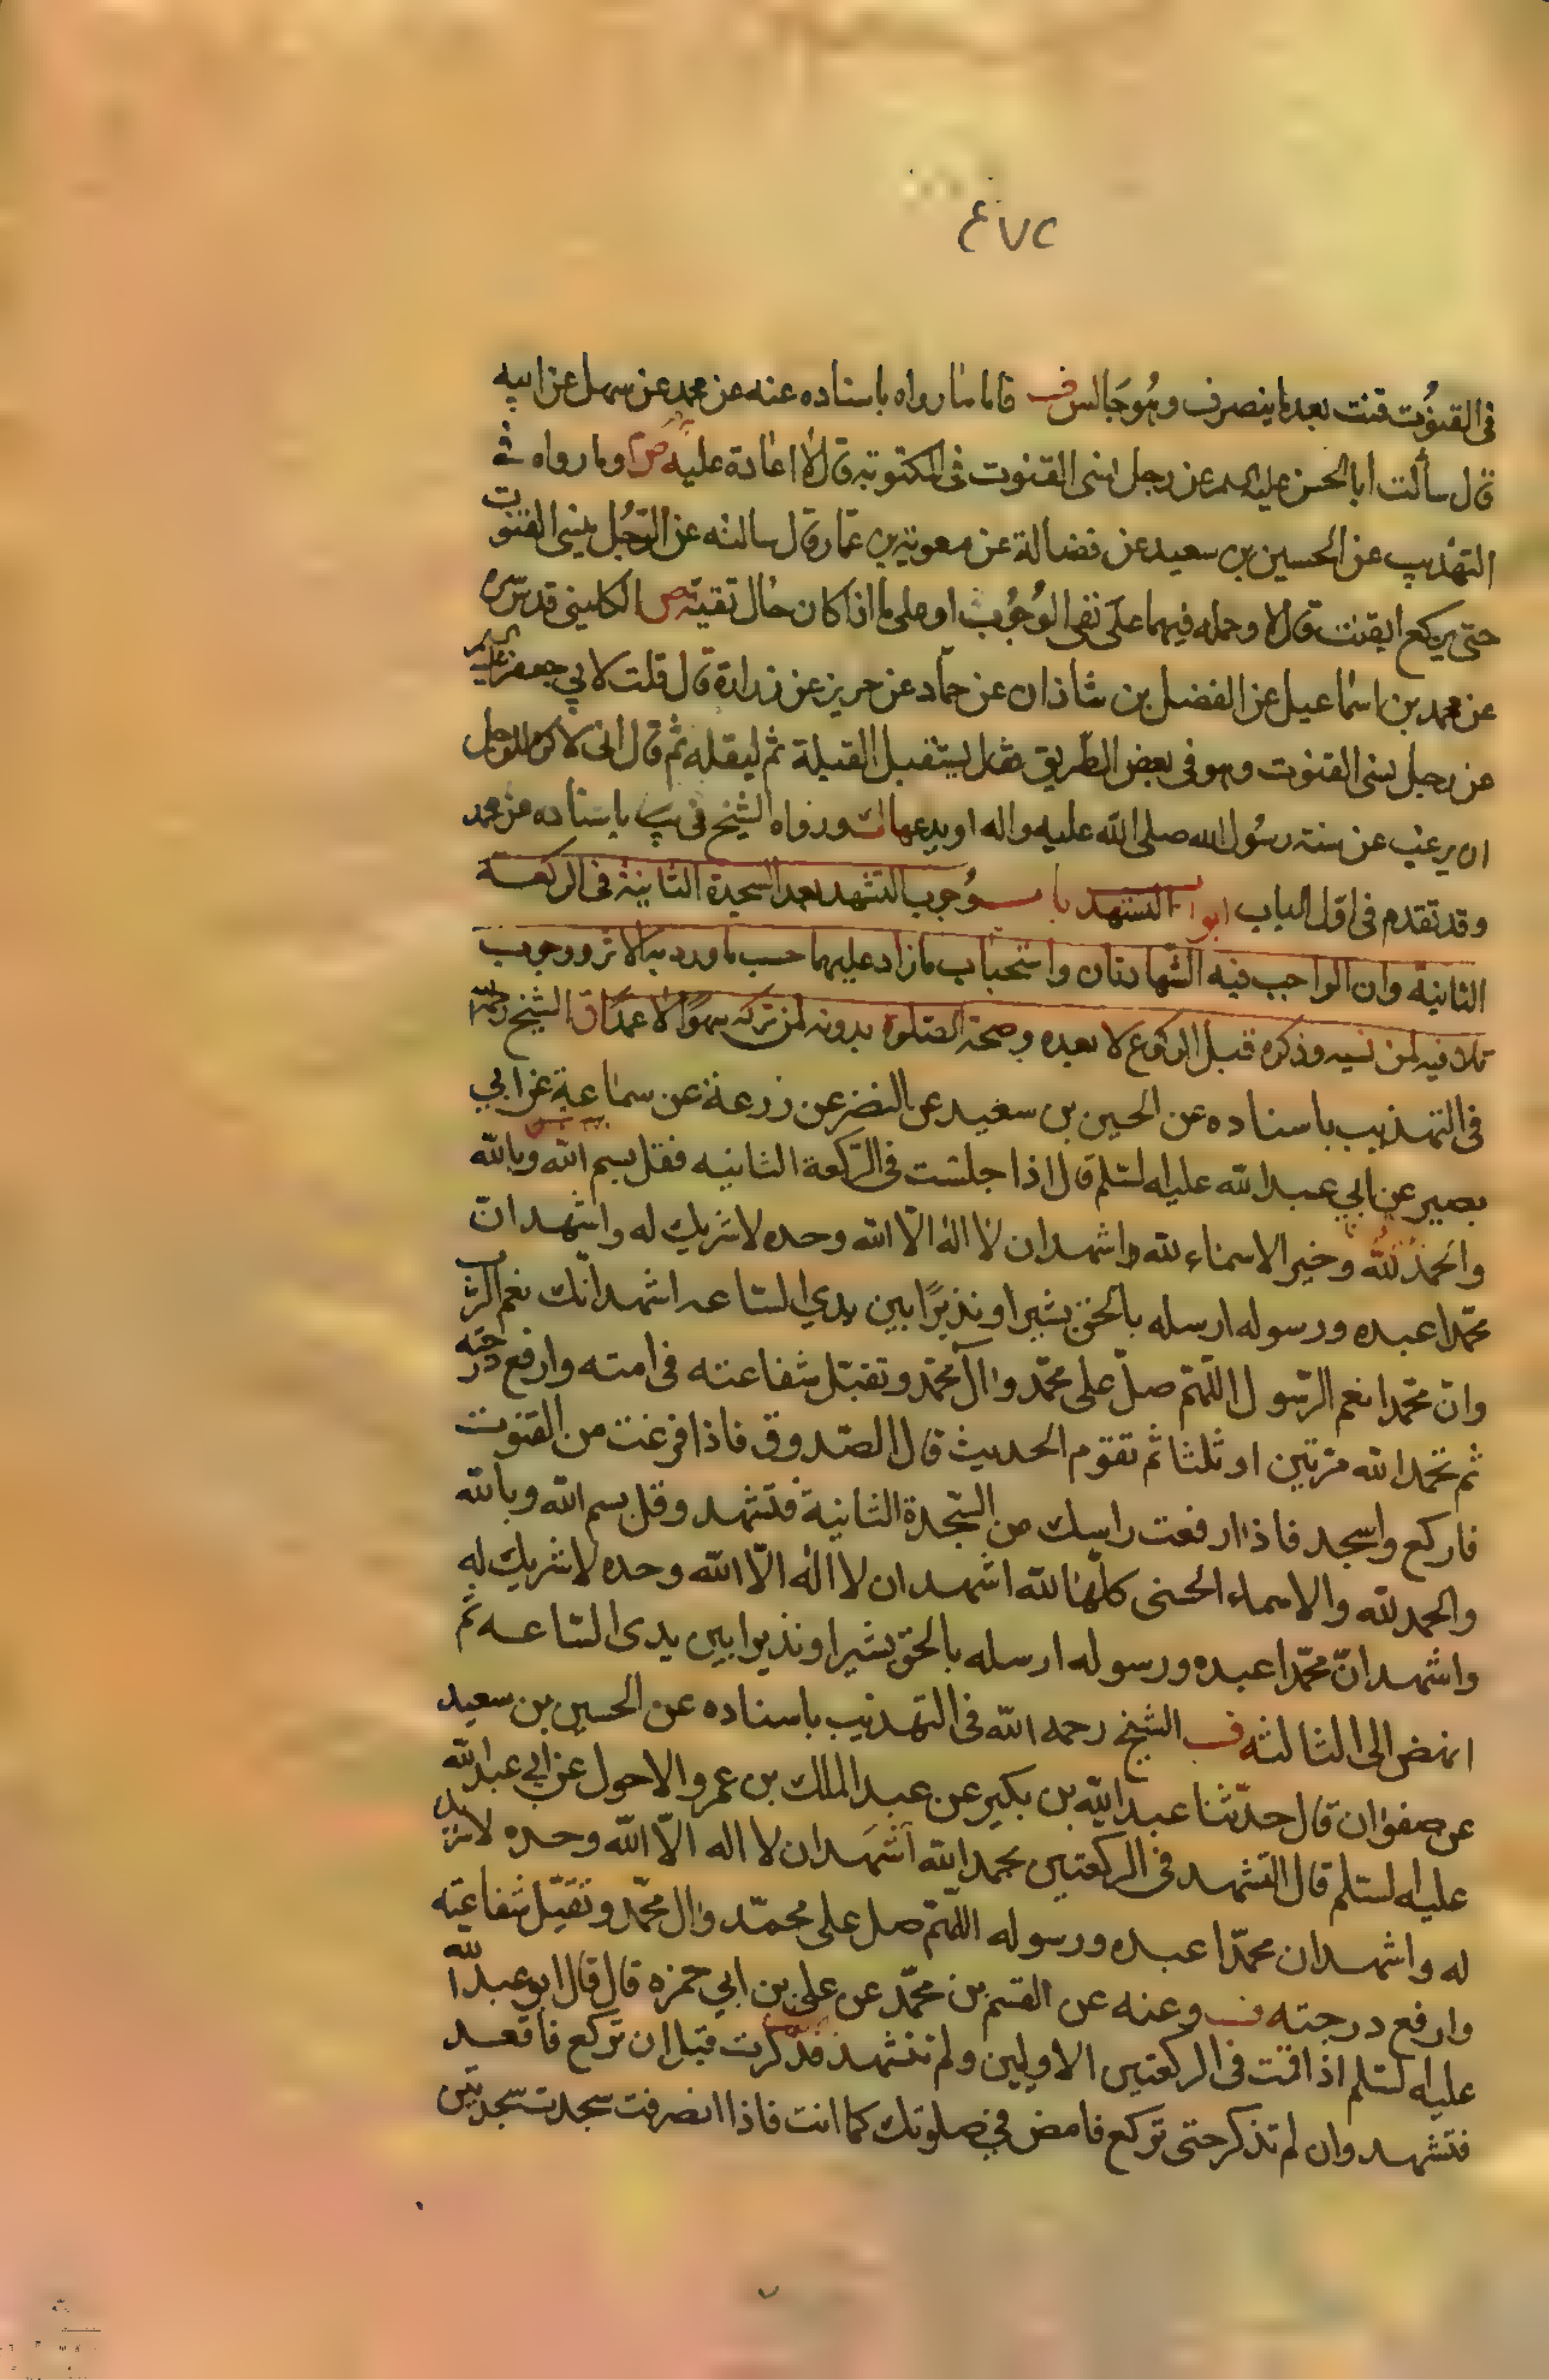 ٤٧٥
فى القنوت قنت بعدما ينصرف وهو جالس ف فاما ما رواه باسناده عنه عن محمد عن سهل عن ابيه
قال سألت ابا الحسن عليه السلم عن رجل نسى القنوت فى المكتوبة قال لا اعادة عليه ص وما رواه فى
التهذيب عن الحسين بن سعيد عن فضالة عن معوية بن عمار قال سالته عن الرجل ينسى القنوت
حتى يركع ايقنت قال لا وحمله فيهما على نفى الوجوب او على ما اذا كان حال تقية ص الكلينى قدس سره
عن محمد بن اسماعيل عن الفضل بن شاذان عن حماد عن حريز عن زرارة قال قلت لابي جعفر عليه السلم
عن رجل نسى القنوت وهو فى بعض الطريق فقال يستقبل القبلة ثم ليقله ثم قال انى لاكره للرجل
ان يرغب عن سنة رسول الله صلى الله عليه واله او يدعها ورواه الشيخ فى يب باسناده عن محمد
وقد تقدم فى اول الباب ابواب التشهد باب وجوب التشهد بعد السجدة الثانية فى الركعة
الثانية وان الواجب فيه الشهادتان واستحباب ما زاد عليهما حسب ما ورد به الاثر ووجوب
تلافيه لمن نسيه وذكره قبل الركوع لا بعده وصحة الصلوة بدونه لمن تركه سهوا لا عمدا ق الشيخ رحمه الله
فى التهذيب باسناده عن الحسين بن سعيد عن النضر عن زرعة عن سماعة عن ابي
بصير عن ابي عبد الله عليه السلم قال اذا جلست فى الركعة الثانيه فقل بسم الله وبالله
والحمد لله وخير الاسماء لله واشهد ان لا اله الّا الله وحده لا شريك له واشهد انّ
محمّدا عبده ورسوله ارسله بالحق بشيرا ونذيرًا بين يدي الساعه اشهد انّك نعم الرب
وانّ محمّدا نعم الرّسول اللّهمّ صلّ على محمّد وآل محمّد وتقبّل شفاعته فى امته وارفع درجته
ثم تحمد الله مرّتين او ثلثا ثم تقوم الحديث قال الصّدوق فاذا فرغت من القنوت
فاركع واسجد فاذا رفعت راسك من السّجدة الثانية فتشهد وقل بسم الله وبالله
والحمد لله والاسماء الحسنى كلّها لله اشهد ان لا اله الّا الله وحده لا شريك له
واشهد انّ محمّدا عبده ورسوله ارسله بالحق بشيرا ونذيرا بين يدى السّاعه ثم
انهض الى الثالثه ف الشيخ رحمه الله فى التهذيب باسناده عن الحسين بن سعيد
عن صفوان قال حدّثنا عبد الله بن بكير عن عبد الملك بن عمرو الاحول عن ابي عبد الله
عليه السلم قال التشهد فى الركعتين الحمد لله اشهد ان لا اله الّا الله وحده لا شريك
له واشهد ان محمّدا عبده ورسوله اللّهمّ صل على محمّد وال محمّد وتقبّل شفاعته
وارفع درجته ف وعنه عن القسم بن محمّد عن على بن ابي حمزه قال قال ابو عبد الله
عليه السلم اذا قمت فى الركعتين الاوليين ولم تتشهد فذكرت قبل ان تركع فاقعد
فتشهد وان لم تذكر حتى تركع فامض في صلوتك كما انت فاذا انصرفت سجدت سجدتين